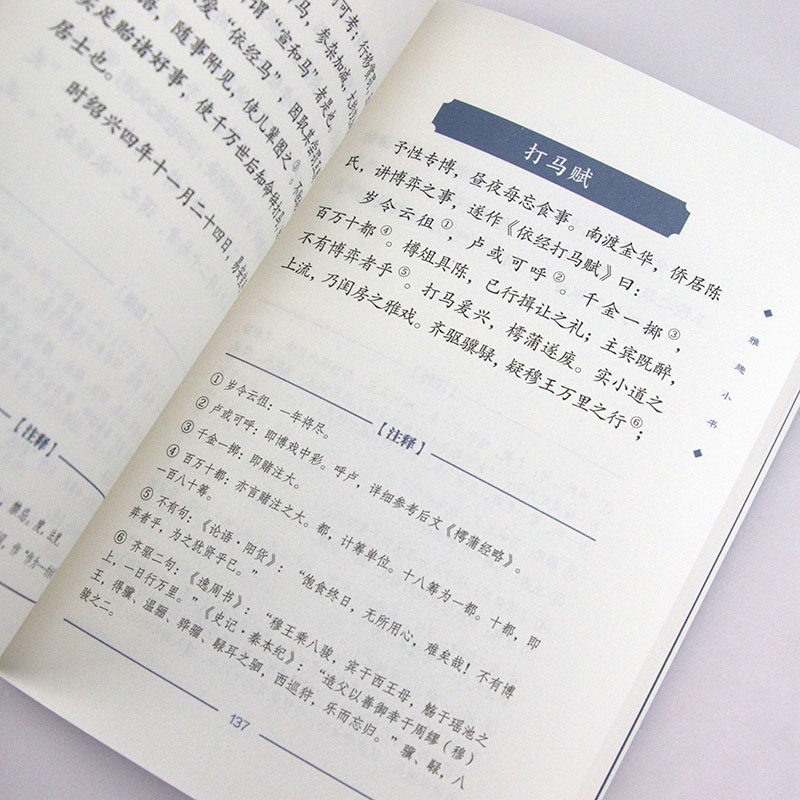 可者；行移赏罚
马，参杂加减，大
谓“宣和马”者是也。
爱“依经马”，因取其赏罚
，随事附见，使儿辈图之③。不
实足贻诸好事，使千万世后知命辞打
居士也。
时绍兴四年十一月二十四日，易安
【注释】
打马赋
予性专博，昼夜每忘食事。南渡金华，侨居陈
氏，讲博弈之事，遂作《依经打马赋》曰：
岁令云徂①，卢或可呼②。千金一掷③，
百万十都④。樽俎具陈，已行揖让之礼；主宾既醉，
不有博弈者乎⑤。打马爰兴，樗蒲遂废。实小道之
上流，乃闺房之雅戏。齐驱骥騄，疑穆王万里之行⑥；
【注释】
①岁令云徂：一年将尽。
②卢或可呼：即博戏中彩。呼卢，详细参考后文《樗蒲经略》。
③千金一掷：即赌注大。
④百万十都：亦言赌注之大。都，计筹单位。十八筹为一都。十都，即
一百八十筹。
⑤不有句：《论语·阳货》：“饱食终日，无所用心，难矣哉！不有博
弈者乎，为之犹贤乎已。”
⑥齐驱二句：《逸周书》：“穆王乘八骏，宾于西王母，觞于瑶池之
上，一日行万里。”《史记·秦本纪》：“造父以善御幸于周缪（穆）
王，得骥、温骊、骅骝、騄耳之驷，西巡狩，乐而忘归。”骥、騄，八
骏之二。
137
雅趣小书